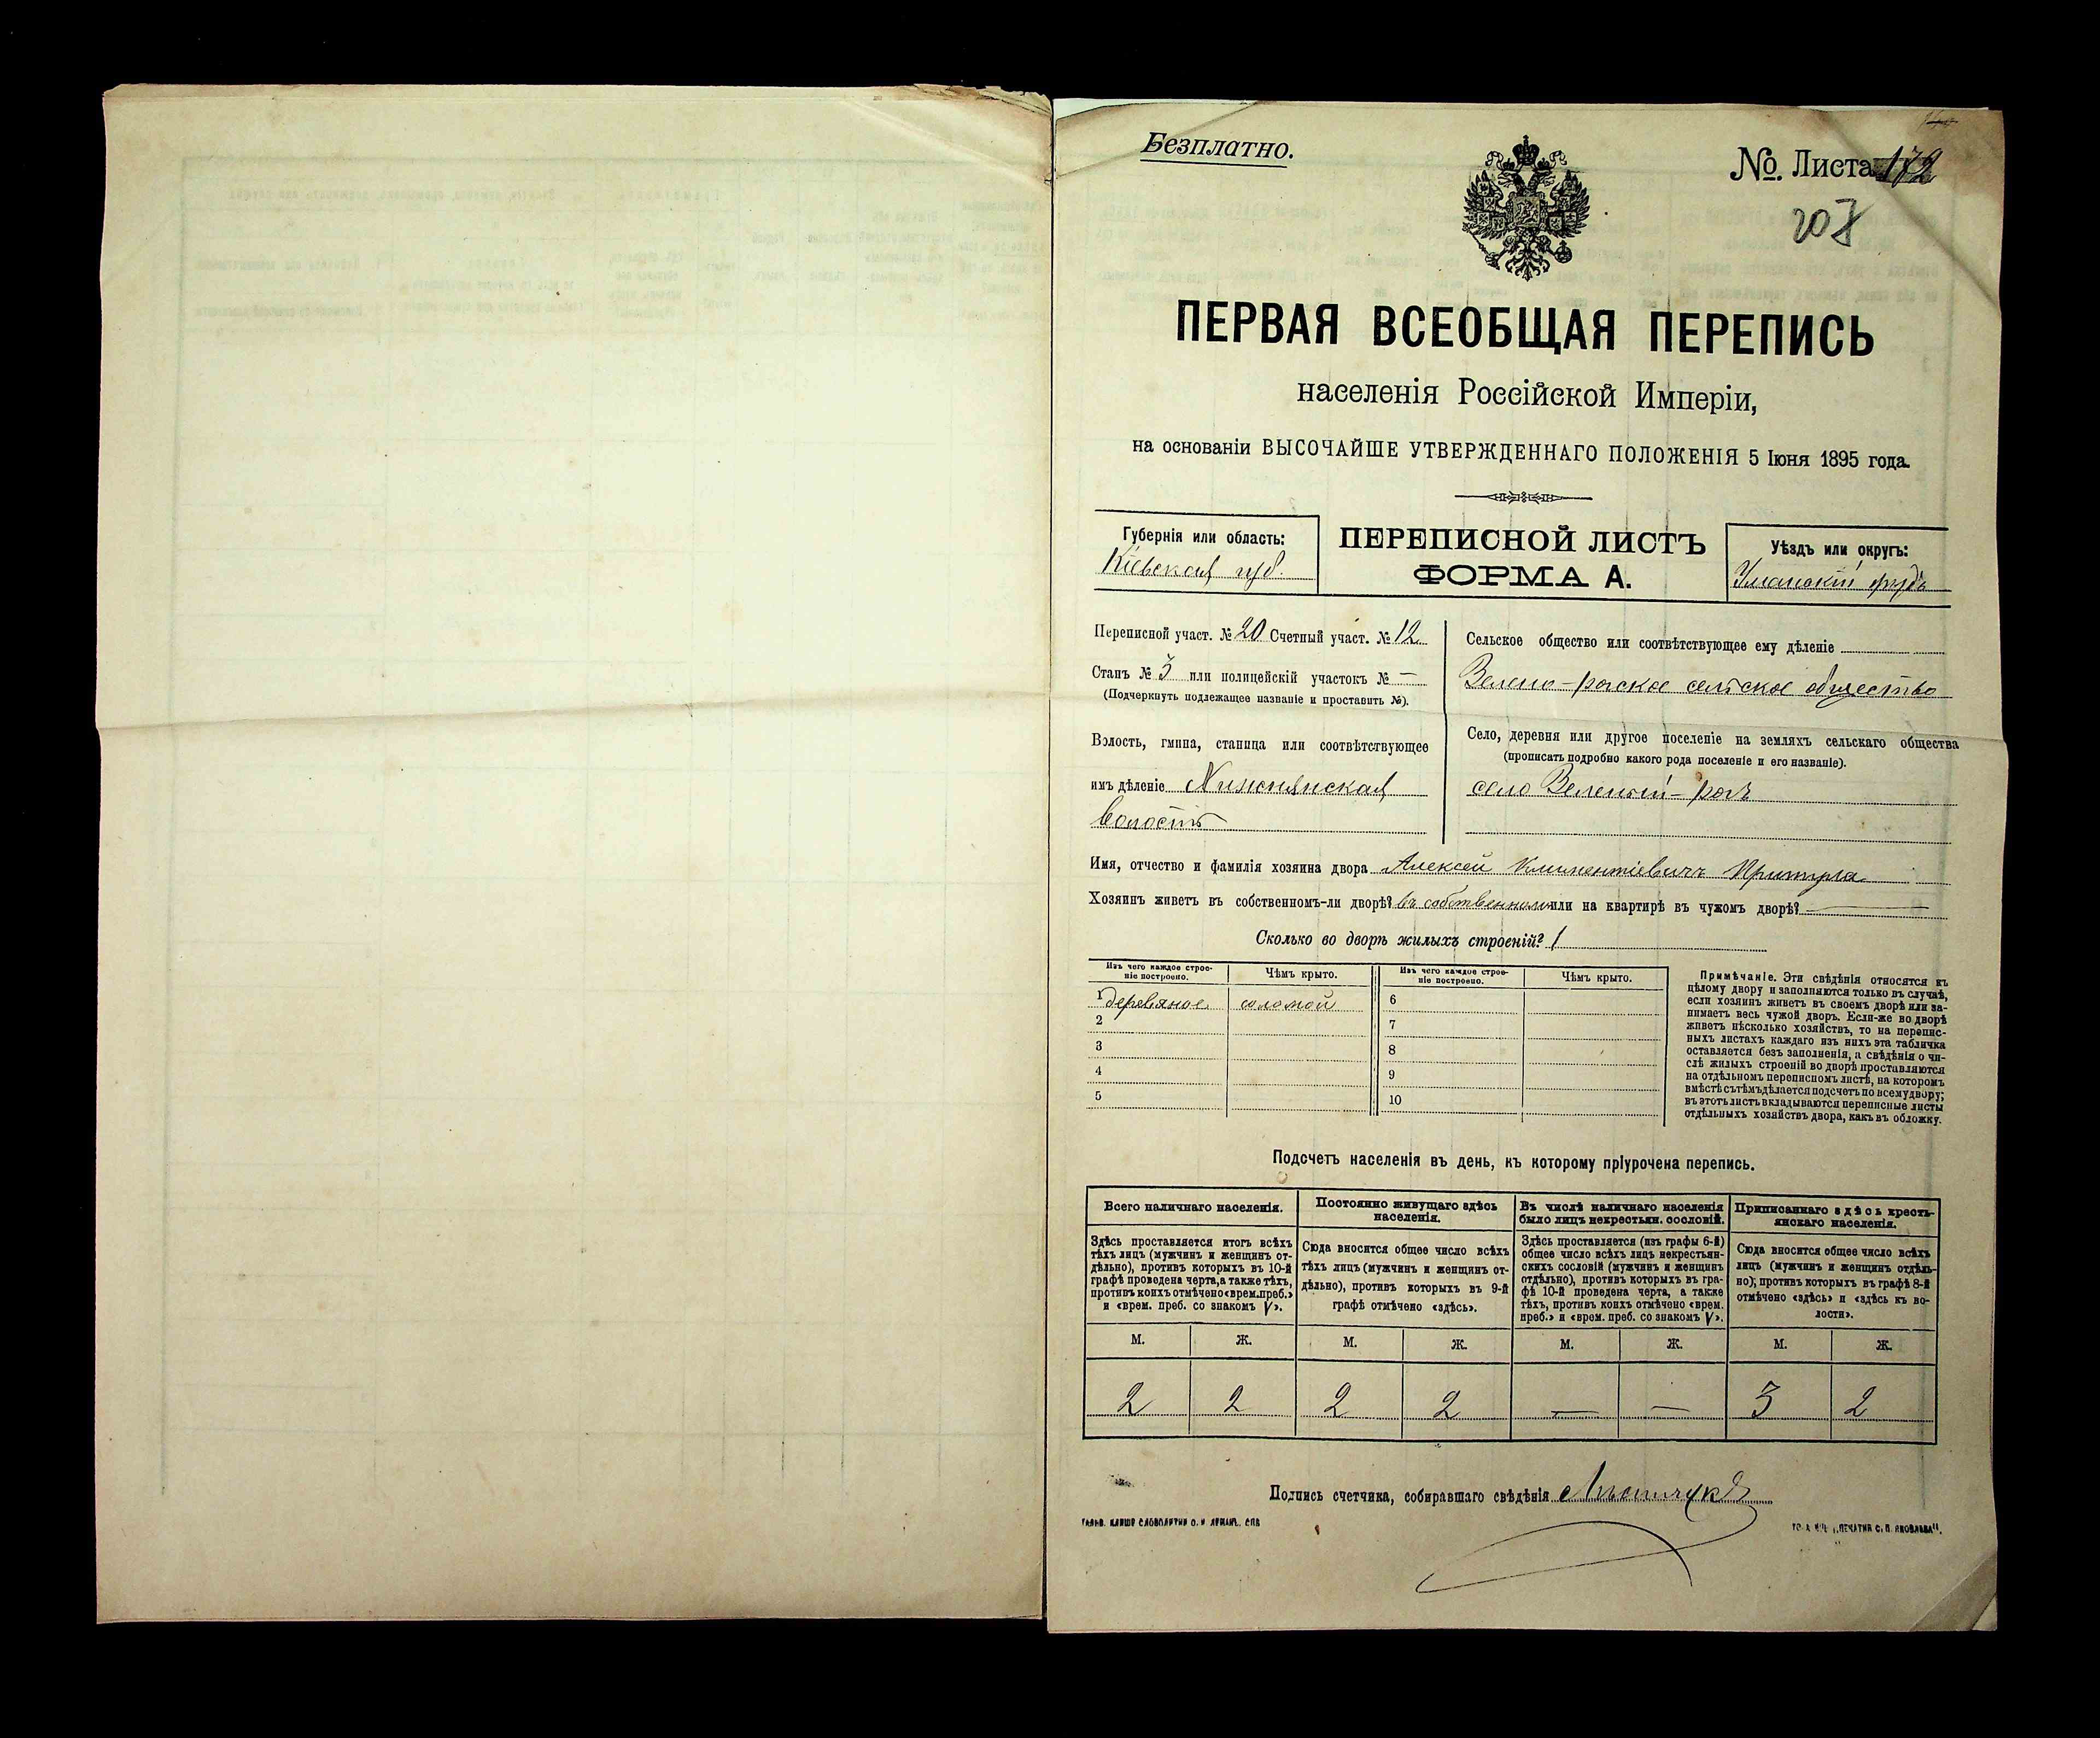 Безплатно.
№ Листа 172
207
ПЕРВАЯ ВСЕОБЩАЯ ПЕРЕПИСЬ
населенія Россійской Имперіи,
на основаніи ВЫСОЧАЙШЕ УТВЕРЖДЕННАГО ПОЛОЖЕНІЯ 5 Іюня 1895 года.
Губернія или область:
Кіевская губ.
ПЕРЕПИСНОЙ ЛИСТЪ
ФОРМА А.
Уѣздъ или округъ:
Уманскій
Переписной участ. № 20 Счетный участ. № 12
Станъ № 3 или полицейскій участокъ № —
(Подчеркнуть подлежащее названіе и проставить №).
Волость, гмина, станица или соотвѣтствующее
имъ дѣленіе
волость
Сельское общество или соотвѣтствующее ему дѣленіе
Зелено-рогское сельское общество
Село, деревня или другое поселеніе на земляхъ сельскаго общества
(прописать подробно какого рода поселеніе и его названіе).
село Зеленый-рогъ
Имя, отчество и фамилія хозяина двора Алексей Климентіевичъ Притула
Хозяинъ живетъ въ собственномъ-ли дворѣ? въ собственномъ или на квартирѣ въ чужомъ дворѣ? —
Сколько во дворѣ жилыхъ строеній? 1
Изъ чего каждое строе-
ніе построено.
Чѣмъ крыто.
Изъ чего каждое строе-
ніе построено.
Чѣмъ крыто.
1 деревяное соломой 6
2 7
3 8
4 9
5 10
Примѣчаніе. Эти свѣдѣнія относятся къ
цѣлому двору и заполняются только въ случаѣ,
если хозяинъ живетъ въ своемъ дворѣ или за-
нимаетъ весь чужой дворъ. Если-же во дворѣ
живетъ нѣсколько хозяйствъ, то на перепис-
ныхъ листахъ каждаго изъ нихъ эта табличка
оставляется безъ заполненія, а свѣдѣнія о чи-
слѣ жилыхъ строеній во дворѣ проставляются
на отдѣльномъ переписномъ листѣ, на которомъ
вмѣстѣ съ тѣмъ дѣлается подсчетъ по всему двору;
въ этотъ листъ вкладываются переписные листы
отдѣльныхъ хозяйствъ двора, какъ въ обложку.
Подсчетъ населенія въ день, къ которому пріурочена перепись.
Всего наличнаго населенія.
Постоянно живущаго здѣсь
населенія.
Въ числѣ наличнаго населенія
было лицъ некрестьян. сословій.
Приписаннаго здѣсь кресть-
янскаго населенія.
Здѣсь проставляется итогъ всѣхъ
тѣхъ лицъ (мужчинъ и женщинъ от-
дѣльно), противъ которыхъ въ 10-й
графѣ проведена черта, а также тѣхъ,
противъ коихъ отмѣчено «врем. преб.»
и «врем. преб. со знакомъ V».
Сюда вносится общее число всѣхъ
тѣхъ лицъ (мужчинъ и женщинъ от-
дѣльно), противъ которыхъ въ 9-й
графѣ отмѣчено «здѣсь».
Здѣсь проставляется (изъ графы 6-й)
общее число всѣхъ лицъ некрестьян-
скихъ сословій (мужчинъ и женщинъ
отдѣльно), противъ которыхъ въ гра-
фѣ 10-й проведена черта, а также
тѣхъ, противъ коихъ отмѣчено «врем.
преб.» и «врем. преб. со знакомъ V».
Сюда вносится общее число всѣхъ
лицъ (мужчинъ и женщинъ отдѣль-
но), противъ которыхъ въ графѣ 8-й
отмѣчено «здѣсь» и «здѣсь къ во-
лости».
М. Ж. М. Ж. М. Ж. М. Ж.
2 2 2 2 — — 3 2
Подпись счетчика, собиравшаго свѣдѣнія
ГАЛЬВ. КЛИШЕ СЛОВОЛИТНИ О. И. ЛЕМАНЪ. СПБ
„ПЕЧАТНЯ С. П. ЯКОВЛЕВА“.